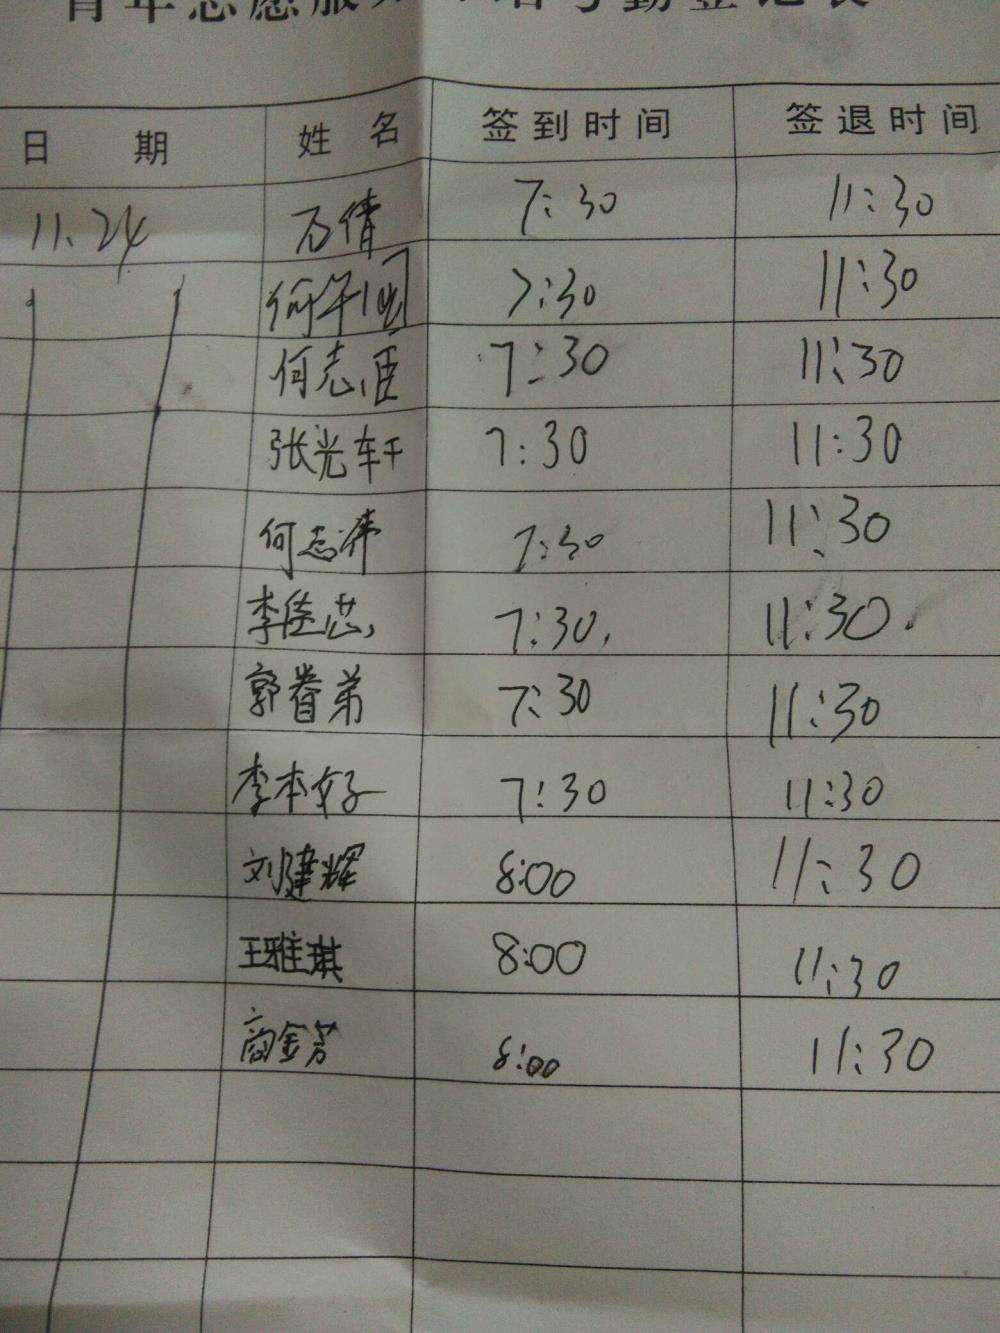 青年志愿服务
考勤登记表
日 期 姓 名 签到时间 签退时间
11.24 万倩 7:30 11:30
何 7:30 11:30
何志臣 7:30 11:30
张光轩 7:30 11:30
何志 7:30 11:30
李佳芯 7:30 11:30
郭眷弟 7:30 11:30
李本好 7:30 11:30
刘建辉 8:00 11:30
王雅琪 8:00 11:30
商金芳 8:00 11:30